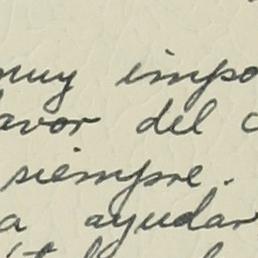 muy impo
avor del c
siempre.
a ayudar